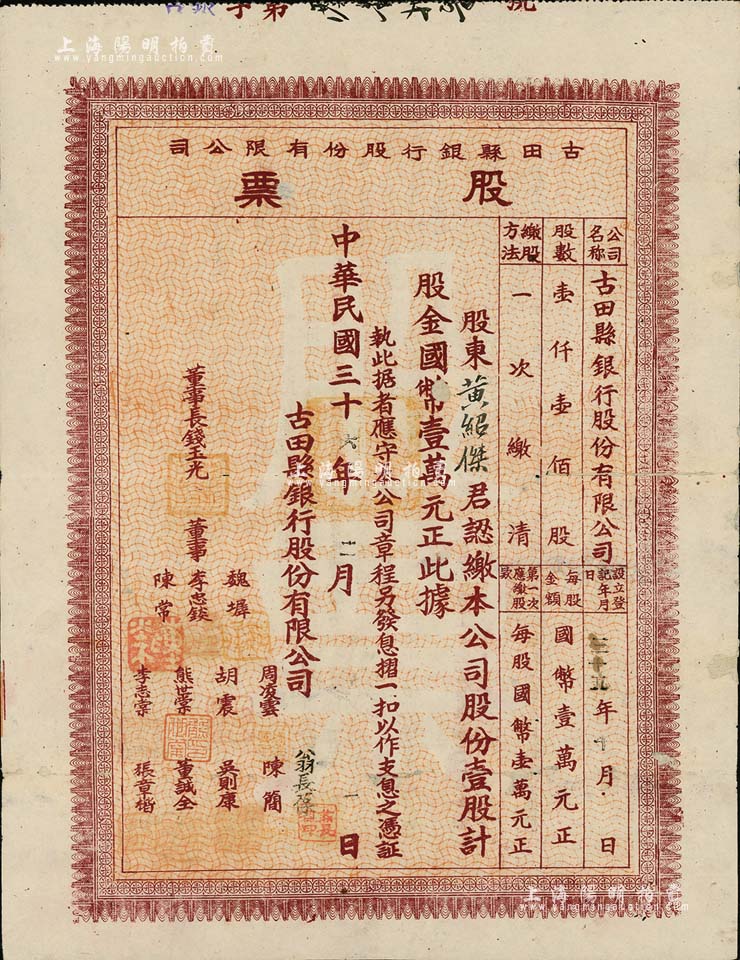 號 第 字 銀
上海陽明拍賣
www.yangmingauction.com
古田縣銀行股份有限公司
股票
公司名称 古田縣銀行股份有限公司
設立登記年月日 三十五年十月 日
股數 壹仟壹佰股
每股金額 國幣壹萬元正
繳股方法 一次繳清
第一次應繳股款 每股國幣壹萬元正
股東黃紹傑君認繳本公司股份壹股計
股金國幣壹萬元正此據
執此据者應守公司章程另發息摺一扣以作支息之憑証
中華民國三十六年十二月一日
古田縣銀行股份有限公司
董事長錢玉光
董事 魏墀 李志錟 陳常
周凌雲 胡震 熊世崇 李志棠
翁長蔭 陳簡 吳則康 董誠全 張章楷
上海陽明拍賣
www.yangmingauction.com
上海陽明拍賣
www.yangmingauction.com